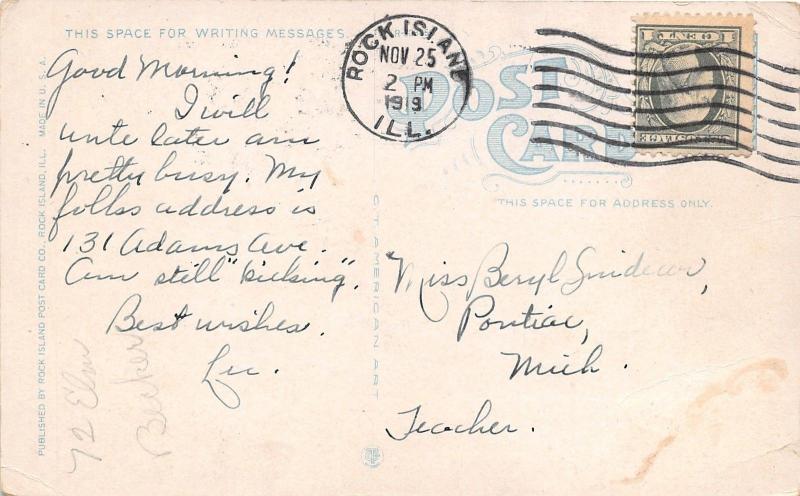 THIS SPACE FOR WRITING MESSAGES.
Good Morning!
I will
write later am
pretty busy. My
folks address is
131 Adams Ave.
Am still "kicking".
Best wishes.
72 Elm
Becker
PUBLISHED BY ROCK ISLAND POST CARD CO., ROCK ISLAND, ILL. MADE IN U.S.A.
C.T. AMERICAN ART
ROCK ISLAND
NOV 25
2 PM
1919
ILL.
POST
CARD
THIS SPACE FOR ADDRESS ONLY.
Miss Beryl
Pontiac,
Mich.
Teacher.